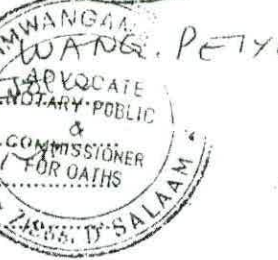 MWANGAN
WANG. PEIY
ADVOCATE
NOTARY PUBLIC
&
COMMISSIONER
FOR OATHS
D'SALAAM